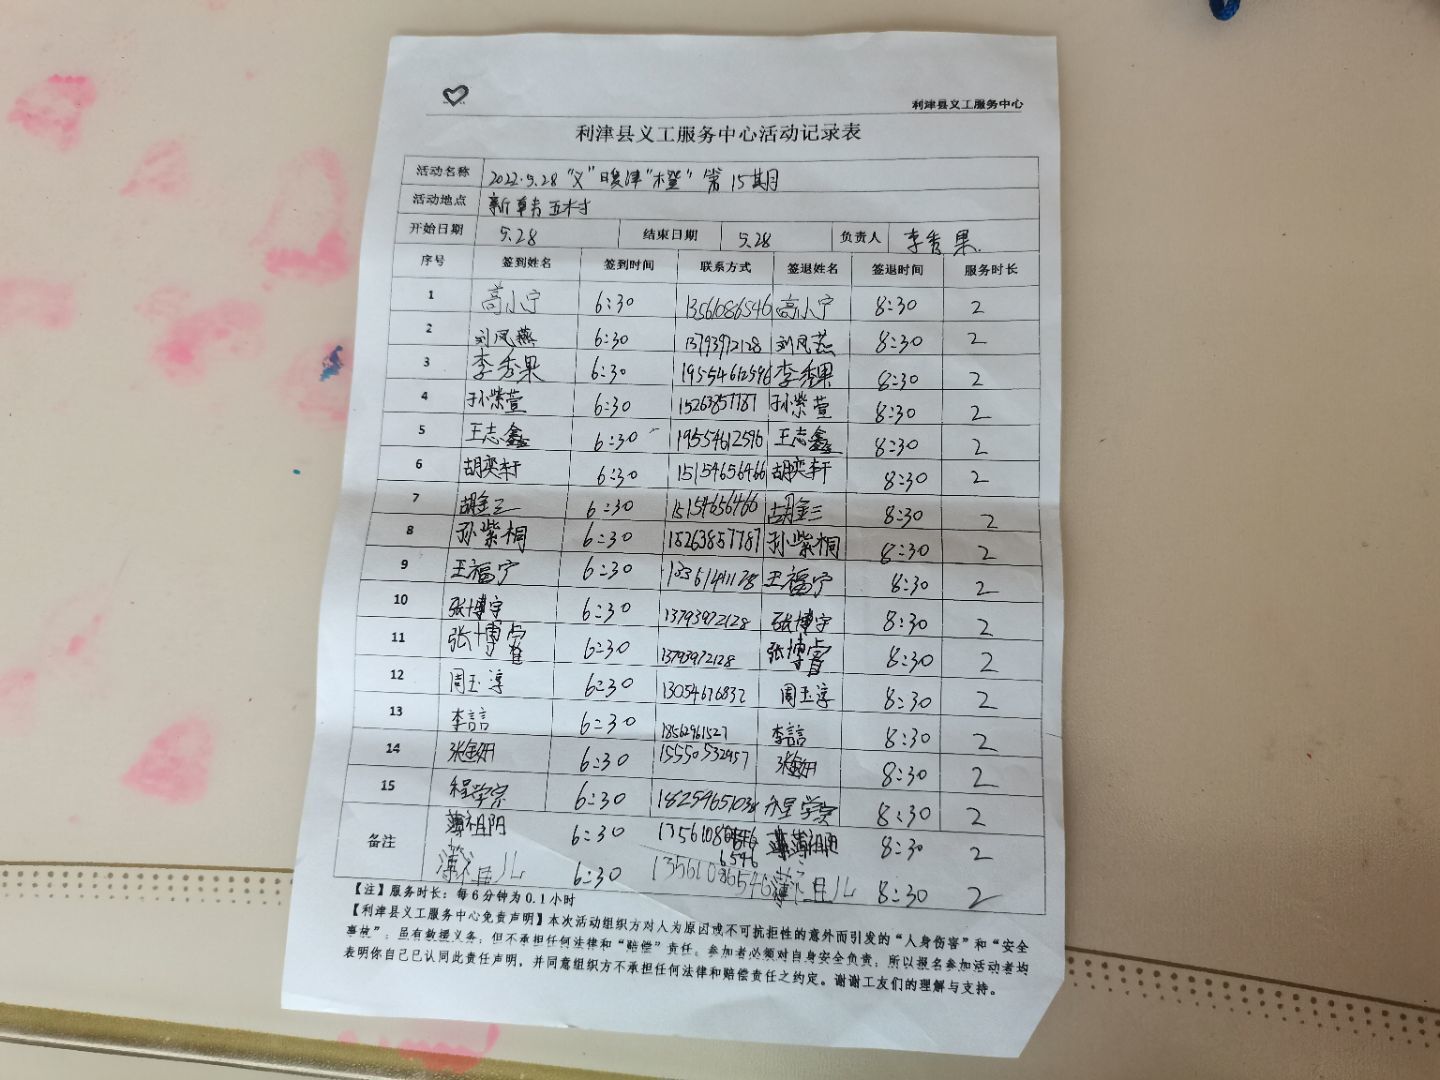 利津县义工服务中心
利津县义工服务中心活动记录表
活动名称 2022.5.28 “义”暖津“橙” 第15期
活动地点 新韩五村
开始日期 5.28 结束日期 5.28 负责人 李秀果
序号 签到姓名 签到时间 联系方式 签退姓名 签退时间 服务时长
1 高小宁 6:30 13561086546 高小宁 8:30 2
2 刘凤燕 6:30 13793972128 刘凤燕 8:30 2
3 李秀果 6:30 19554612596 李秀果 8:30 2
4 孙紫萱 6:30 15263857787 孙紫萱 8:30 2
5 王志鑫 6:30 19554612596 王志鑫 8:30 2
6 胡奕轩 6:30 15154656466 胡奕轩 8:30 2
7 胡金三 6:30 15154656466 胡金三 8:30 2
8 孙紫桐 6:30 15263857787 孙紫桐 8:30 2
9 王福宁 6:30 王福宁 8:30 2
10 张博宇 6:30 13793972128 张博宇 8:30 2
11 张博睿 6:30 13793972128 张博睿 8:30 2
12 周玉淳 6:30 13054676832 周玉淳 8:30 2
13 李言 6:30 18562961527 李言 8:30 2
14 6:30 15550532957 8:30 2
15 程学宗 6:30 程学宗 8:30 2
备注 薄祖阴 6:30 1356108 6546 薄祖阴 8:30 2
薄祖儿 6:30 13561086546 薄祖儿 8:30 2
【注】服务时长：每6分钟为0.1小时
【利津县义工服务中心免责声明】本次活动组织方对人为原因或不可抗拒性的意外而引发的“人身伤害”和“安全
事故”，虽有救援义务，但不承担任何法律和“赔偿”责任。参加者必须对自身安全负责，所以报名参加活动者均
表明你自己已认同此责任声明，并同意组织方不承担任何法律和赔偿责任之约定。谢谢工友们的理解与支持。